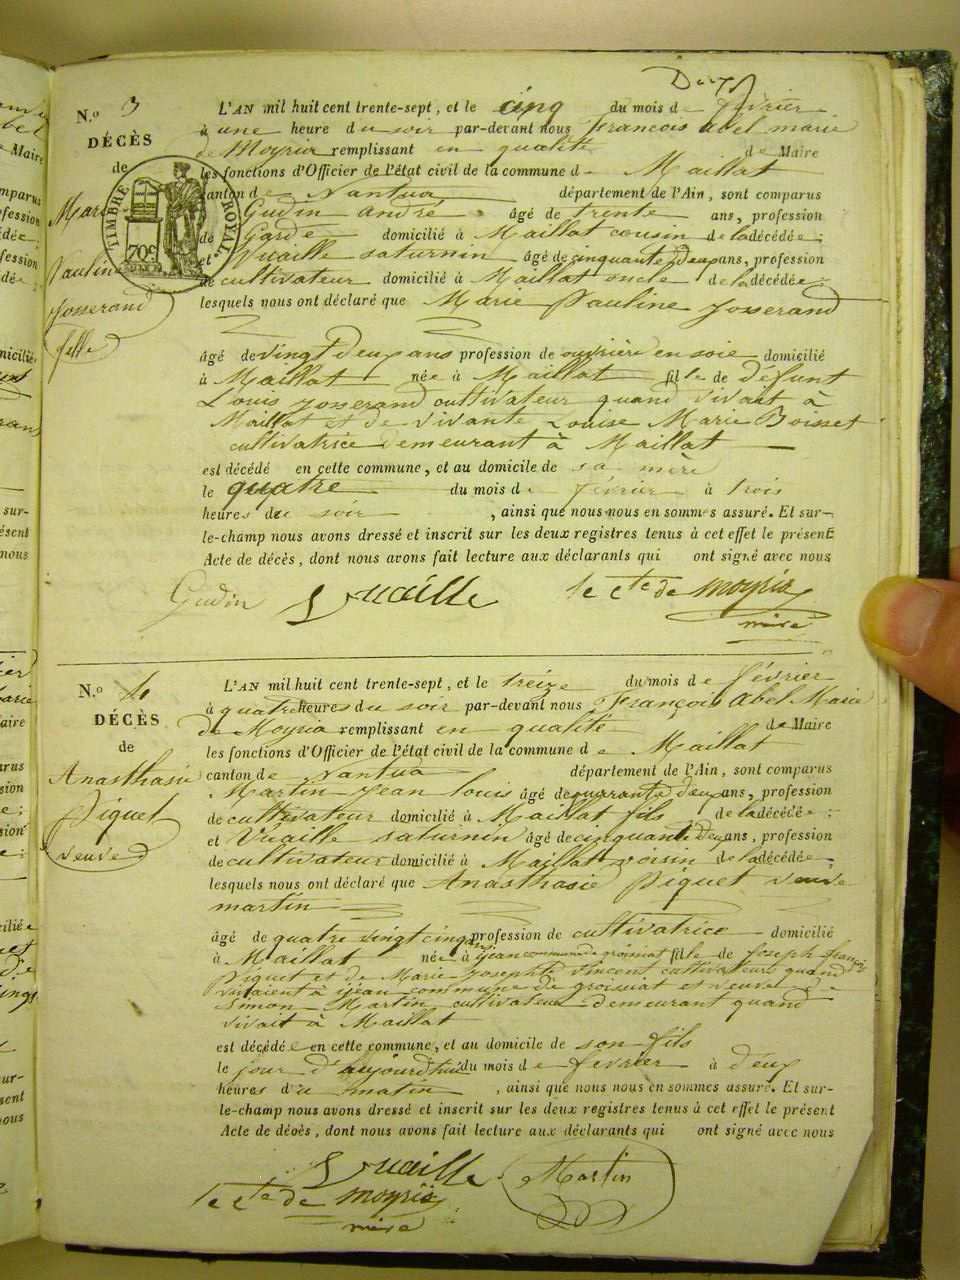 Deux
N.º 3
DÉCÈS
de
Marie
Pauline
Josserand
fille
TIMBRE ROYAL.
70c
L'AN mil huit cent trente-sept, et le cinq du mois de février
à une heure du soir par-devant nous françois abel marie
de Moyria remplissant en qualité de Maire
les fonctions d'Officier de l'état civil de la commune de Maillat
canton de Nantua département de l'Ain, sont comparus
Gudin andré âgé de trente ans, profession
de Garde domicilié à Maillat cousin de la décédée;
et Vuaille saturnin âgé de cinquante deux ans, profession
de cultivateur domicilié à Maillat oncle de la décédée
lesquels nous ont déclaré que Marie Pauline Josserand
âgé de vingt deux ans profession de ouvrière en soie domicilié
à Maillat née à Maillat fille de défunt
Louis Josserand cultivateur quand vivait à
Maillat et de vivante Louise Marie Boisset
cultivatrice demeurant à Maillat
est décédé en cette commune, et au domicile de sa mère
le quatre du mois de février à trois
heures du soir, ainsi que nous nous en sommes assuré. Et sur-
le-champ nous avons dressé et inscrit sur les deux registres tenus à cet effet le présent
Acte de décès, dont nous avons fait lecture aux déclarants qui ont signé avec nous
Gudin S Vuaille le Cte de Moyria
mire
N.º 4
DÉCÈS
de
Anasthasie
Piquet
veuve
L'AN mil huit cent trente-sept, et le treize du mois de février
à quatre heures du soir par-devant nous François Abel Marie
de Moyria remplissant en qualité de Maire
les fonctions d'Officier de l'état civil de la commune de Maillat
canton de Nantua département de l'Ain, sont comparus
Martin Jean Louis âgé de quarante deux ans, profession
de cultivateur domicilié à Maillat fils de la décédée;
et Vuaille saturnin âgé de cinquante deux ans, profession
de cultivateur domicilié à Maillat voisin de la décédée,
lesquels nous ont déclaré que Anasthasie Piquet veuve
martin
âgé de quatre vingt cinq ans profession de cultivatrice domicilié
à Maillat née à ijean commune de groissiat fille de Joseph françois
Piquet et de Marie Josephte Vincent cultivateurs quand
vivaient à ijean commune de groissiat et veuve de
Simon Martin cultivateur demeurant quand
vivait à Maillat
est décédée en cette commune, et au domicile de son fils
le jour d'aujourd'hui du mois de février à deux
heures du matin, ainsi que nous nous en sommes assuré. Et sur-
le-champ nous avons dressé et inscrit sur les deux registres tenus à cet effet le présent
Acte de décès, dont nous avons fait lecture aux déclarants qui ont signé avec nous
S Vuaille Martin
le Cte de Moyria
mire